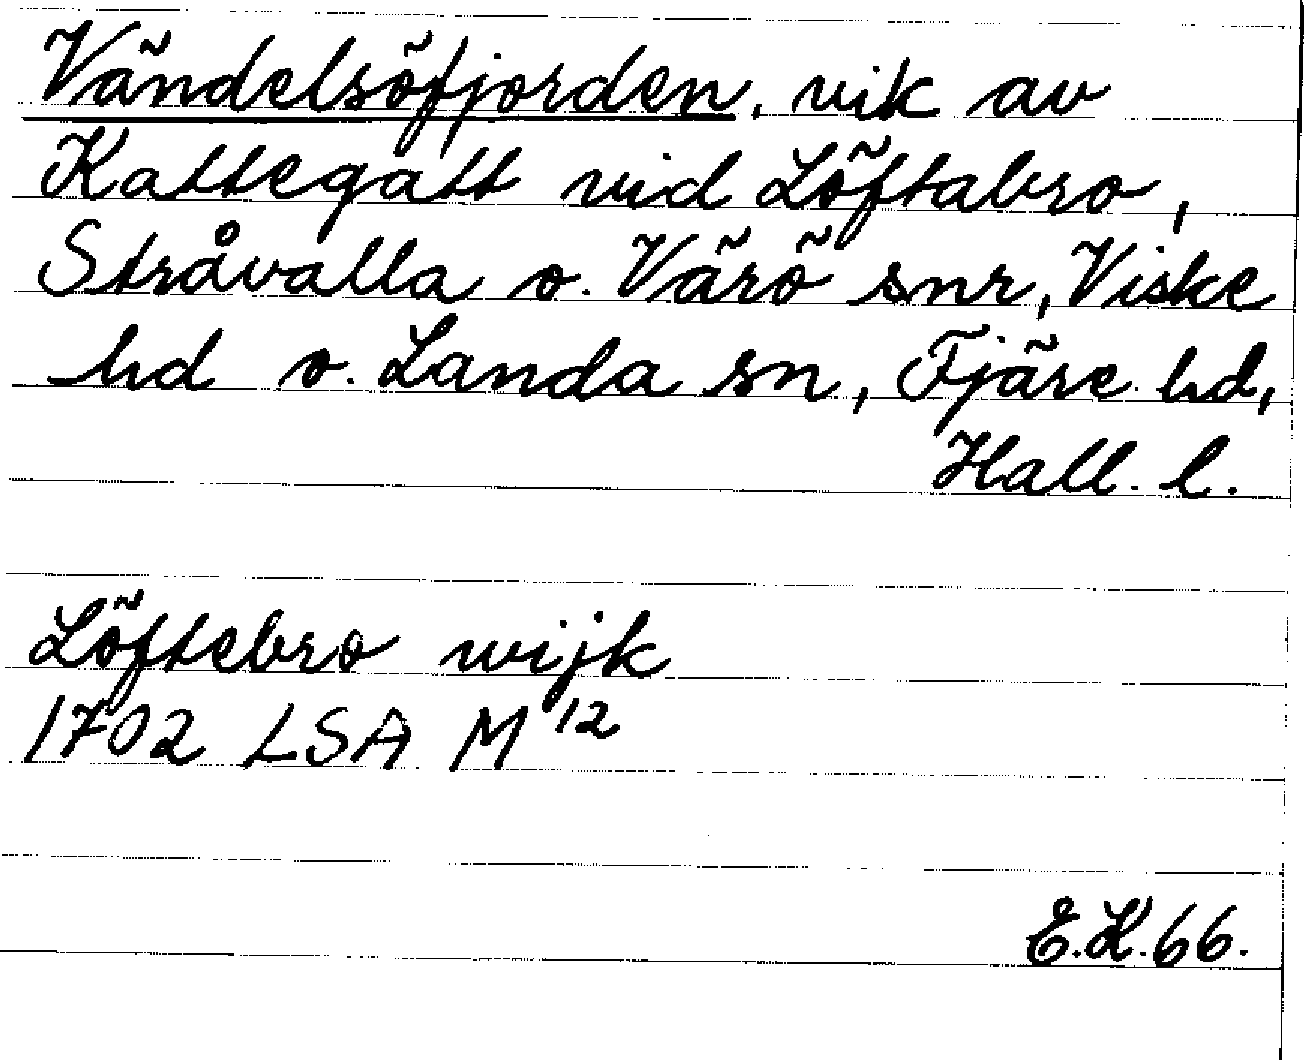 Vändelsöfjorden, vik av
Kattegatt vid Löftabro,
Stråvalla o. Värö snr, Viske
hd o. Landa sn, Fjäre hd,
Hall. l.
Löftebro wijk
1702 LSA M 12
E.K.66.